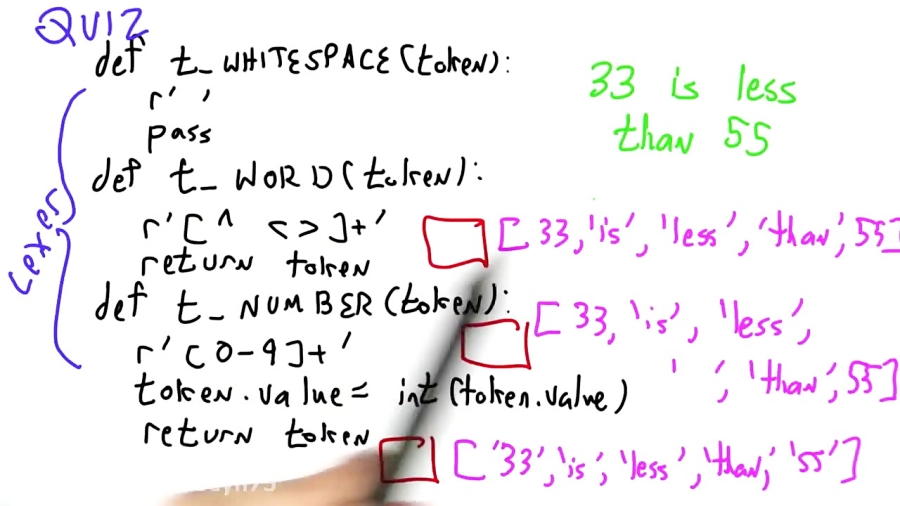 QUIZ
def t_WHITESPACE(token):
r' '
pass
def t_WORD(token):
r'[^ <>]+'
return token
def t_NUMBER(token):
r'[0-9]+'
token.value = int(token.value)
return token
Lexer
33 is less
than 55
[33,'is','less','than',55]
[33,'is','less',
' ','than',55]
['33','is','less','than','55']